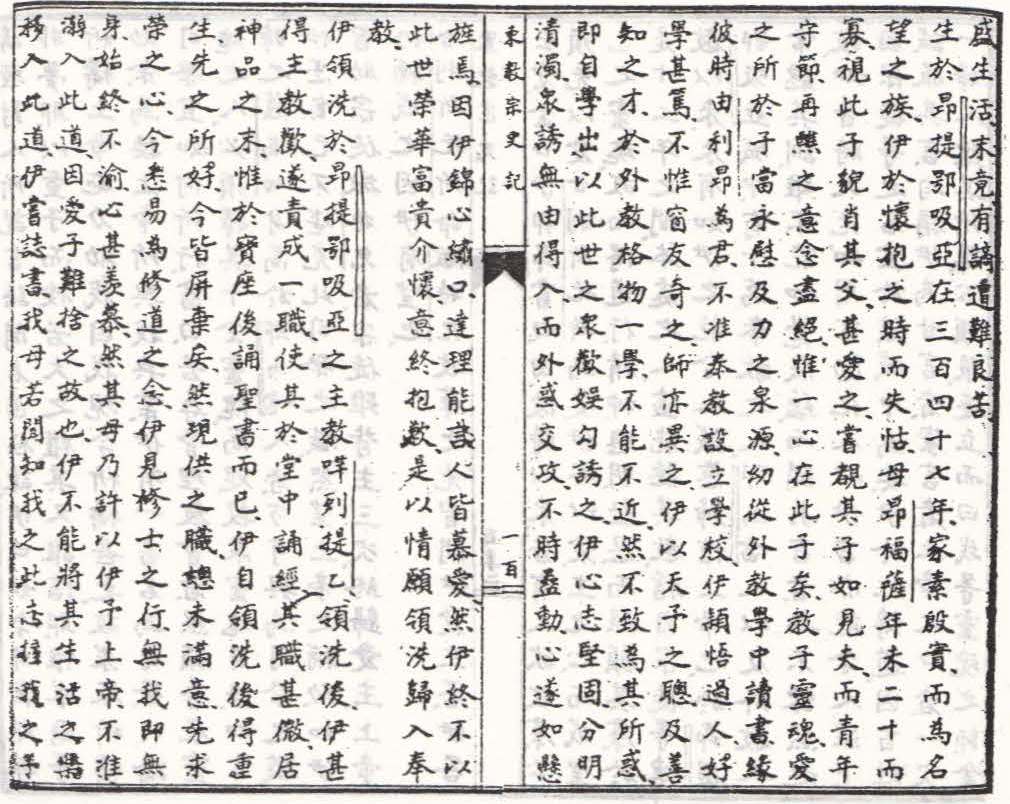 盛生活末竟有謫遣難良苦、
生於昂提鄂吸亞在三百四十七年、家素殷實、而為名
望之族、伊於懷抱之時而失怙、母昂福薩年未二十而
寡、視此子貌肖其父、甚愛之、嘗覩其子如見夫、而青年
守節、再醮之意念盡絕、惟一心在此子矣、教子靈魂、愛
之所於子、當永慰及力之泉源、幼從外教學中讀書、緣
彼時由利昂為君、不准奉教設立學校、伊頴悟過人、好
學甚篤、不惟窗友奇之、師亦異之、伊以天予之聰、及善
知之才、於外教格物一學、不能不近、然不致為其所惑、
即自學出、以此世之眾歡娛勾誘之、伊心志堅固、分明
清濁、眾誘無由得入、而外惑交攻、不時蠢動、心遂如懸
東教宗史記
一百
旌焉、因伊錦心繡口、達理能談、人皆慕愛、然伊終不以
此世榮華富貴介懷、意終抱歉、是以情願領洗歸入奉
教、
伊領洗於昂提鄂吸亞之主教咩列提乙、領洗後、伊甚
得主教歡、遂責成一職、使其於堂中誦經、其職甚微、居
神品之末、惟於寶座後誦聖書而已、伊自領洗後得重
生、先之所好、今皆屏棄矣、然現供之職、總未滿意、先求
榮之心、今悉易為修道之念、伊見修士之行、無我即無
身、始終不渝、心甚羨慕、然其母乃許以伊予上帝、不准
溺入此道、因愛子難捨之故也、伊不能將其生活之噐
移入此道、伊嘗誌書、我母若聞知我之此志、撞我之手